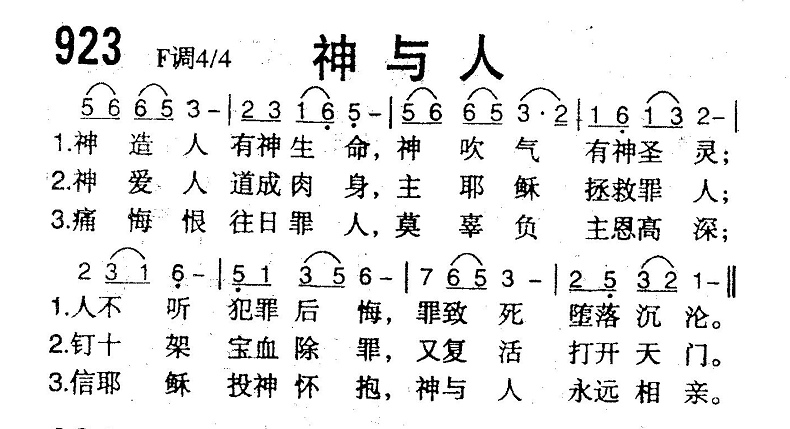 923 F调4/4 神与人
5 6 6 5 3 – | 2 3 1 6 5 – | 5 6 6 5 3 · 2 | 1 6 1 3 2 – |
1.神 造 人 有神生 命，神 吹 气 有神圣 灵；
2.神 爱 人 道成肉 身，主 耶 稣 拯救罪 人；
3.痛 悔 恨 往日罪 人，莫 辜 负 主恩高 深；
2 3 1 6 – | 5 1 3 5 6 – | 7 6 5 3 – | 2 5 3 2 1 – ‖
1.人不 听 犯罪后 悔，罪致 死 堕落沉 沦。
2.钉十 架 宝血除 罪，又复 活 打开天 门。
3.信耶 稣 投神怀 抱，神与 人 永远相 亲。